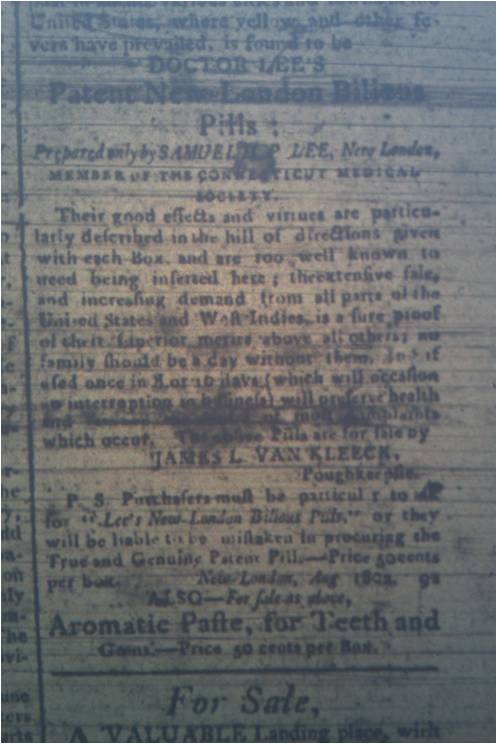 United States, where yellow and other fe-
vers have prevailed, is found to be
DOCTOR LEE'S
Patent New-London Bilious
Pills;
Prepared only by SAMUEL H. P. LEE, New London,
MEMBER OF THE CONNECTICUT MEDICAL
SOCIETY.
Their good effects and virtues are particu-
larly described in the bill of directions given
with each Box, and are too well known to
need being inserted here; the extensive sale,
and increasing demand from all parts of the
United States and West-Indies, is a sure proof
of their superior merits above all others; no
family should be a day without them, and if
used once in 8 or 10 days (which will occasion
no interruption to business) will preserve health
and of most complaints
which occur. The above Pills are for sale by
JAMES L. VAN KLEECK,
Poughkeepsie.
P. S. Purchasers must be particular to ask
for "Lee's New-London Bilious Pills," or they
will be liable to be mistaken in procuring the
True and Genuine Patent Pill.—Price 50 cents
per box. New-London, Aug 1802. 92
ALSO—For sale as above,
Aromatic Paste, for Teeth and
Gums.—Price 50 cents per Box.
For Sale,
A VALUABLE Landing place, with